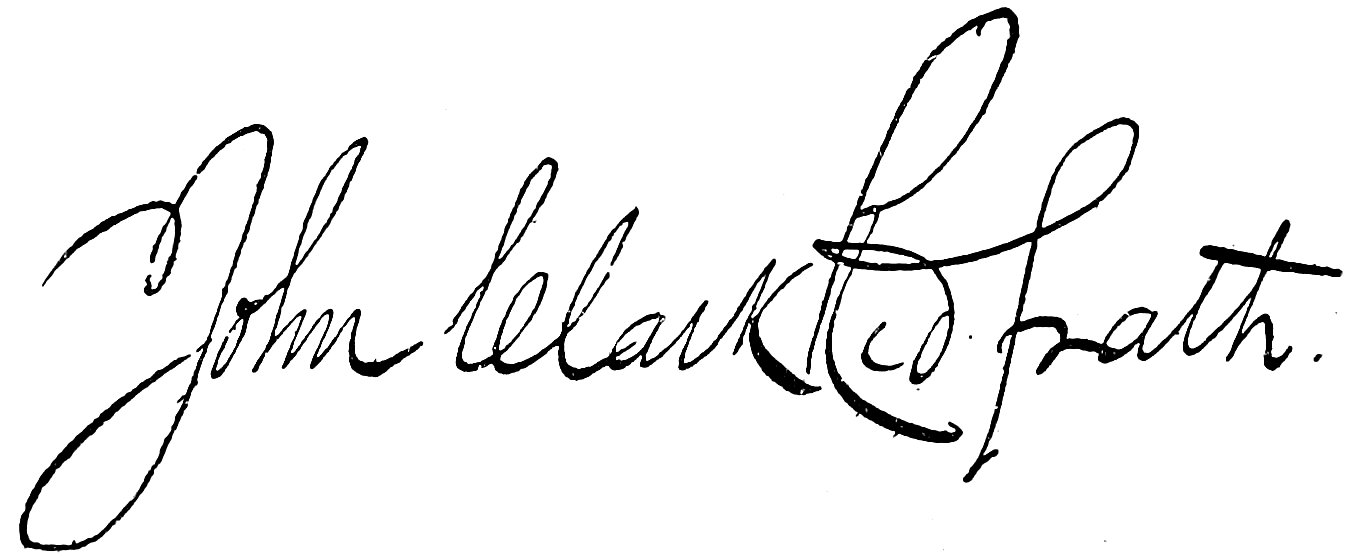 John Clark Ridpath.